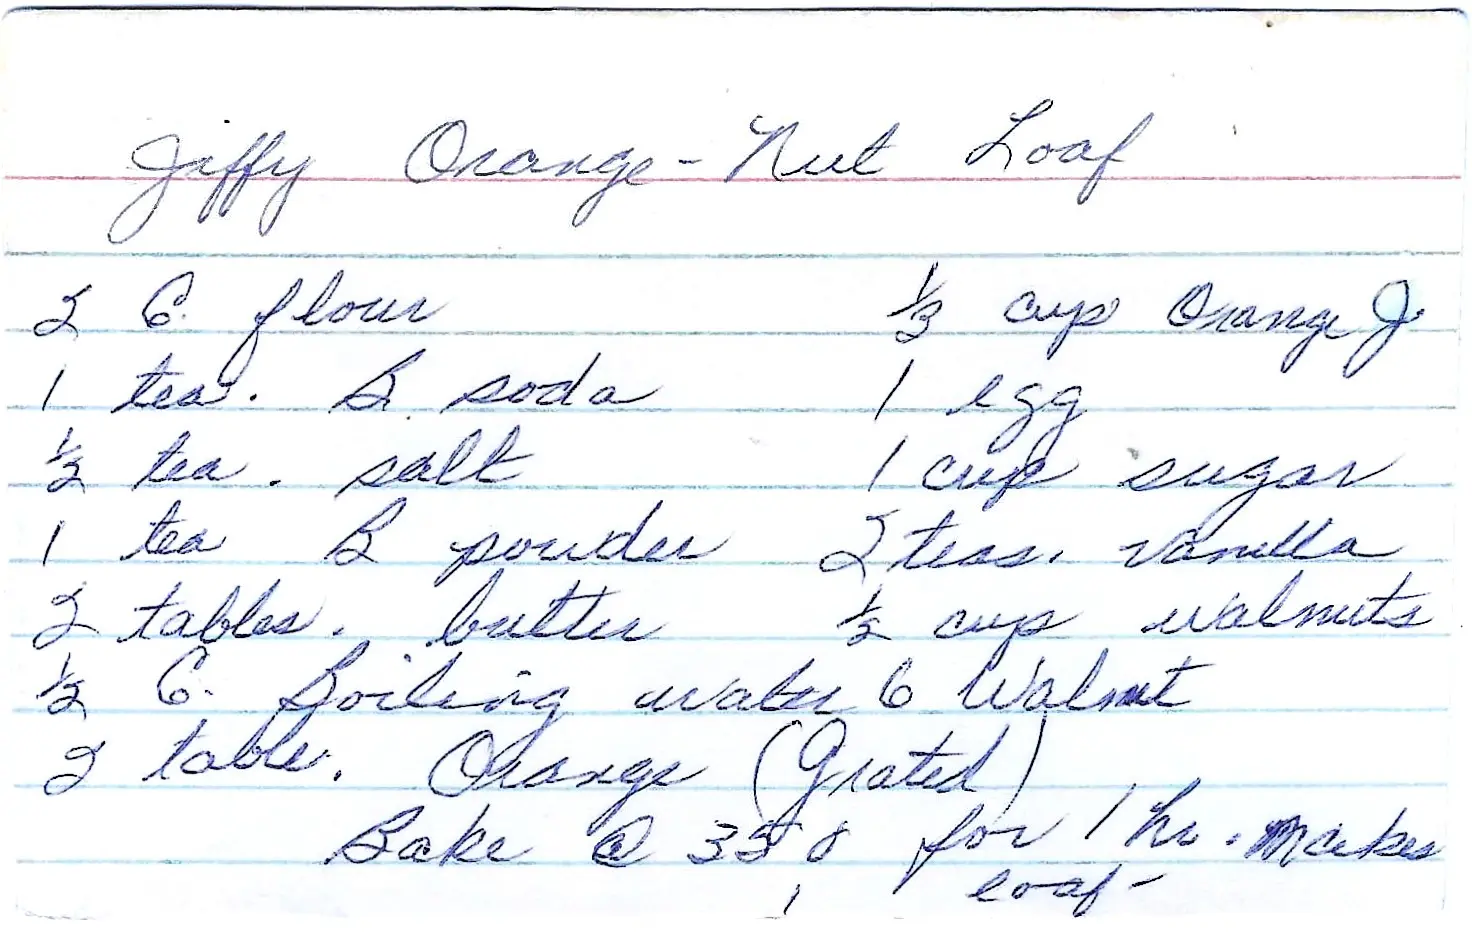 Jiffy Orange-Nut Loaf
2 C. flour 1/3 cup Orange J.
1 tea. B. soda 1 egg
1/2 tea. salt 1 cup sugar
1 tea B powder 2 teas. vanilla
2 tables. butter 1/2 cup walnuts
1/2 C. Boiling water 6 Walnut
2 table. Orange (Grated)
Bake @ 350 for 1 hr. Makes
1 loaf-